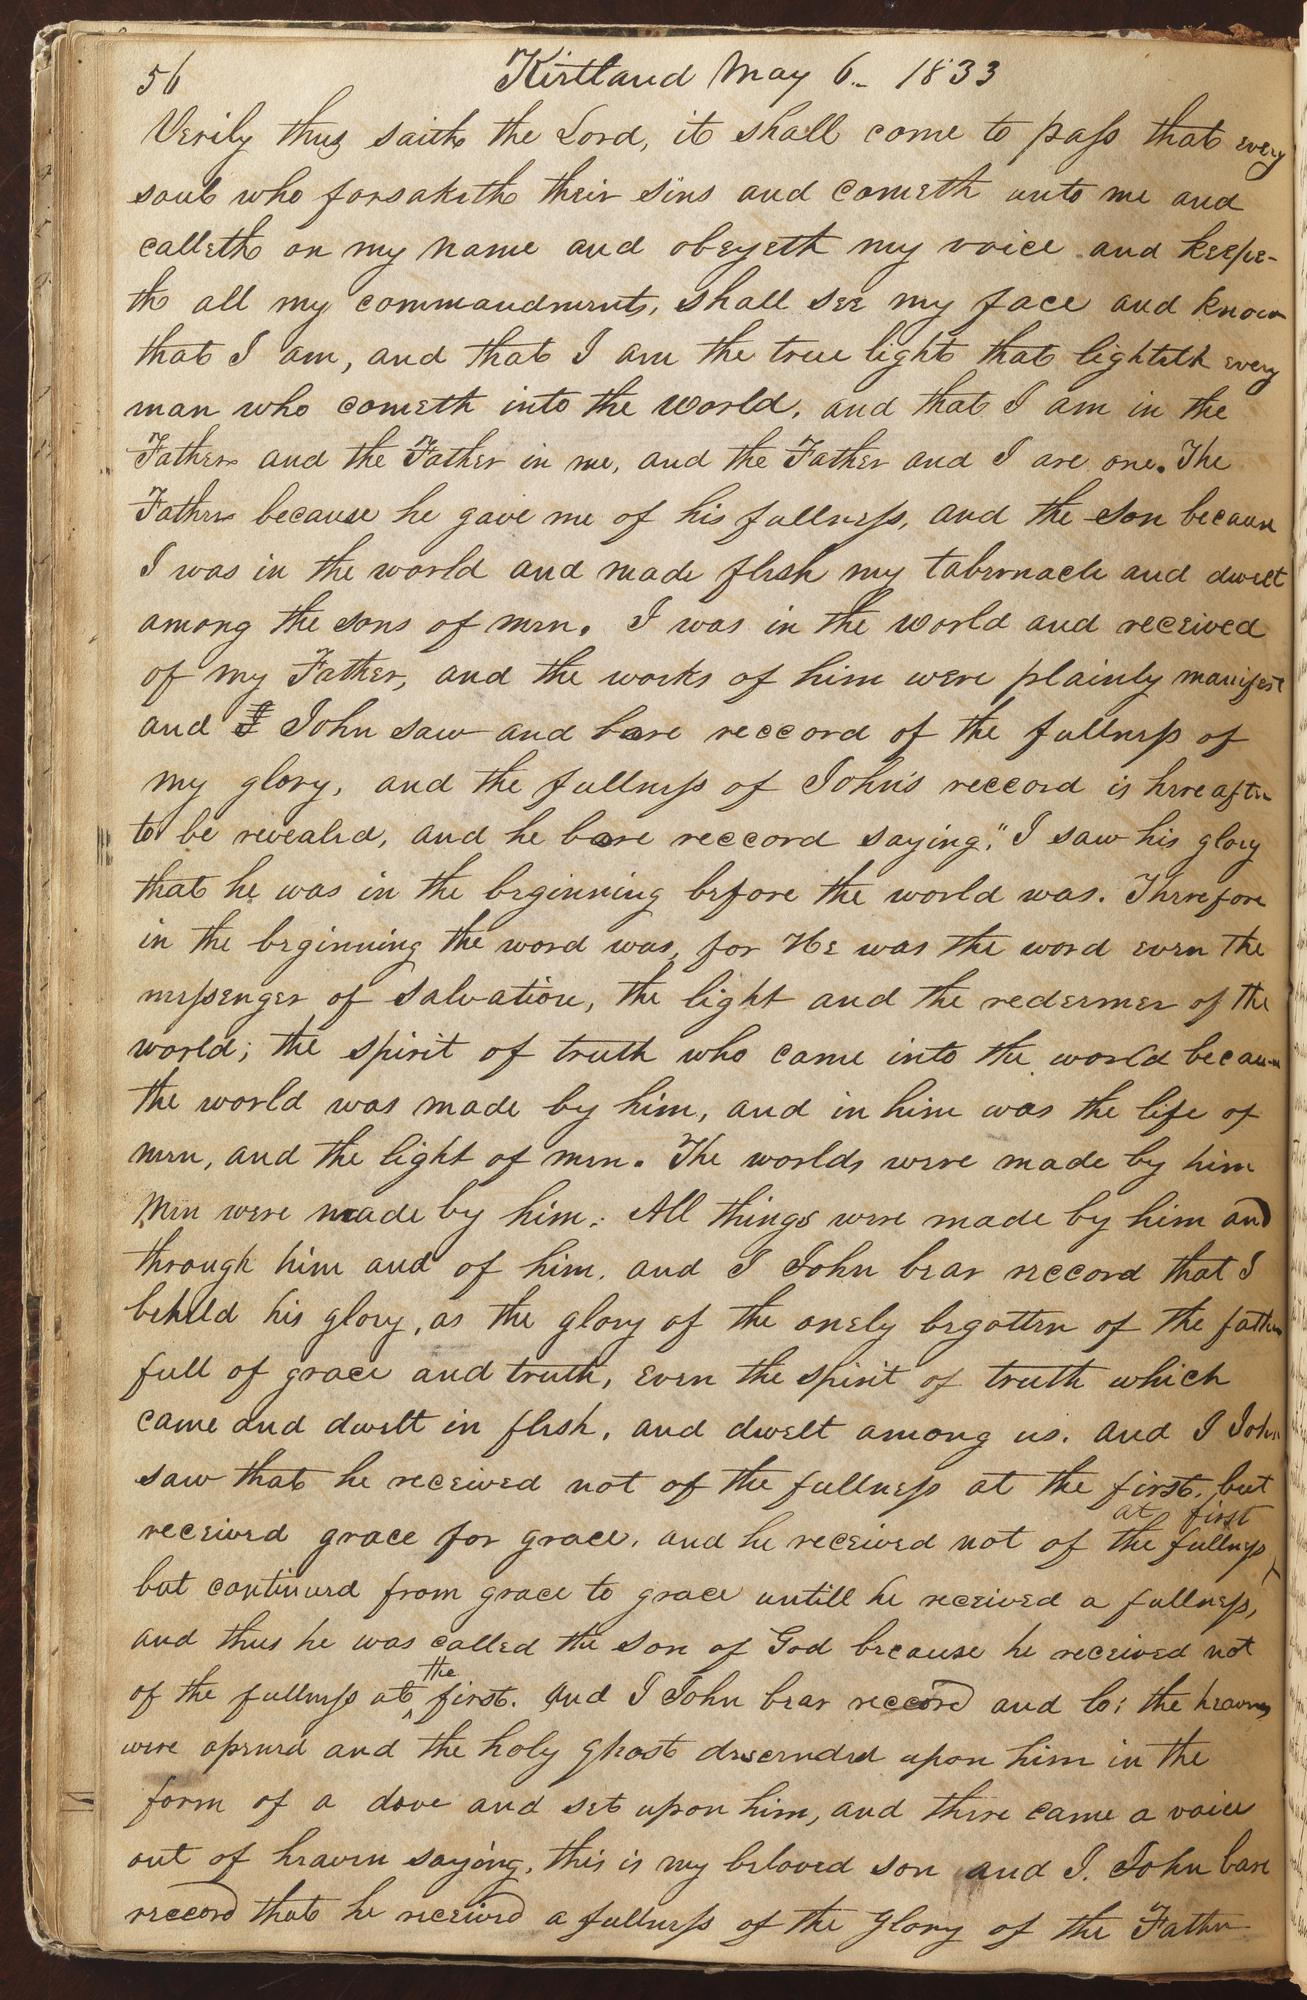 56 Kirtland May 6.. 1833
Verily thus saith the Lord, it shall come to pass that every
soul who forsaketh their sins and cometh unto me and
calleth on my name and obeyeth my voice and keepe-
th all my commandments, shall see my face and know
that I am, and that I am the true light that lighteth every
man who cometh into the world, and that I am in the
Father and the Father in me, and the Father and I are one. The
Father because he gave me of his fullness, and the Son because
I was in the world and made flesh my tabernacle and dwelt
among the sons of men. I was in the world and received
of my Father, and the works of him were plainly manifest
and I John saw and bare reccord of the fullness of
my glory, and the fullness of John's reccord is hereafter
to be revealed, and he bare reccord saying, "I saw his glory
that he was in the beginning before the world was. Therefore
in the beginning the word was, for He was the word even the
messenger of salvation, the light and the redeemer of the
world; the spirit of truth who came into the world because
the world was made by him, and in him was the life of
men, and the light of men. The worlds were made by him
Men were made by him: All things were made by him and
through him and of him. and I John bear reccord that I
beheld his glory, as the glory of the onely begotten of the father
full of grace and truth, even the spirit of truth which
came and dwelt in flesh, and dwelt among us. and I John
saw that he received not of the fullness at the first, but
at first
received grace for grace, and he received not of the fullness
but continued from grace to grace untill he received a fullness,
and thus he was called the Son of God because he received not
the
of the fullness at first. And I John bear reccord and lo; the heavens
were opened and the holy ghost descended upon him in the
form of a dove and set upon him, and there came a voice
out of heaven saying, this is my beloved son and I. John bare
reccord that he received a fullness of the Glory of the Father